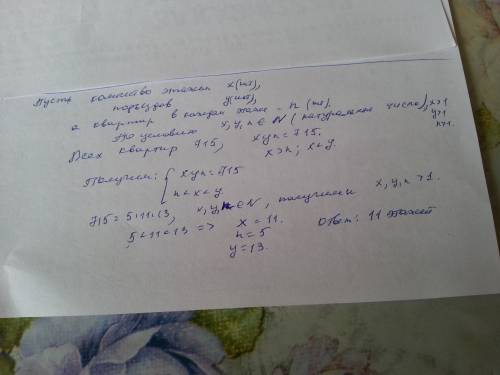 Пусть количество этажей x (шт),
подъездов y (шт),
а квартир в каждом этаже - n (шт).
По условию x, y, n ∈ N (натуральные числа), x>1
y>1
n>1.
Всех квартир 715, xyn = 715.
x > n; x < y.
Получим: { xyn = 715
n < x < y
715 = 5·11·13, x, y, n ∈ N, получим x, y, n > 1.
5 < 11 < 13 => x = 11. Ответ: 11 этажей
n = 5
y = 13.